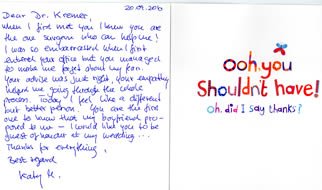 20.09.2010
Dear Dr. Kremer,
when I first met you I knew you are
the one surgeon who can help me!
I was so embarrassed when I first
entered your office but you managed
to make me forget about my fear.
Your advise was just right, your empathy
helped me going through the whole
process. Today I feel like a different
but better person. You are the first
one to know that my boyfriend pro-
posed to me - I would like you to be
guest of honour at my wedding...
Thanks for everything,
Best regard
Katy M.
ooh, you
Shouldn't have!
oh, did I say thanks?